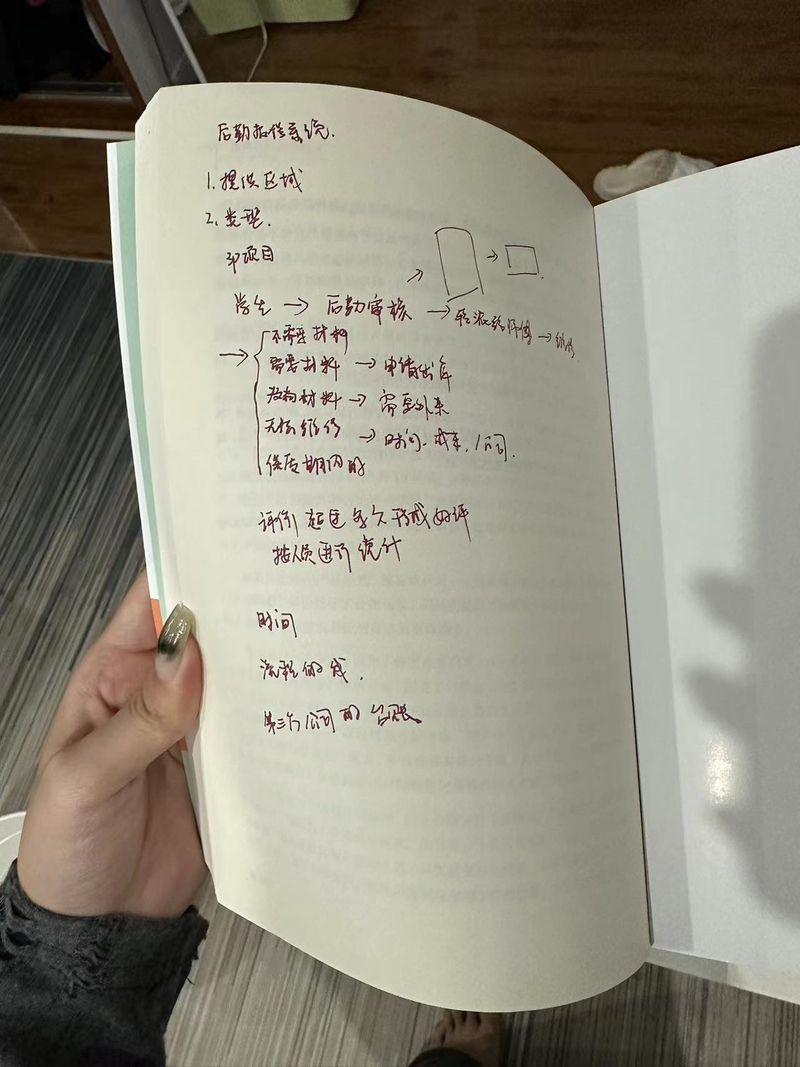 后勤报修系统.
1. 提供区域
2. 类型.
项目
学生 → 后勤审核 → 师傅 → 维修
→ { 不需要材料
需要材料 → 申请出库
采购材料 → 需要外采
无法维修 → 时间、成本、公司.
保质期内的
评价 超过多久形成好评
按人员进行统计
时间
流程的线.
第三方公司的台账